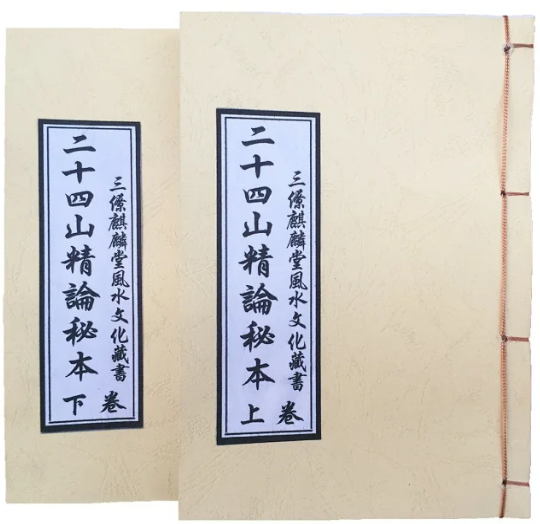 三僚麒麟堂風水文化藏書
二十四山精論秘本
上卷
三僚麒麟堂風水文化藏書
二十四山精論秘本
下卷